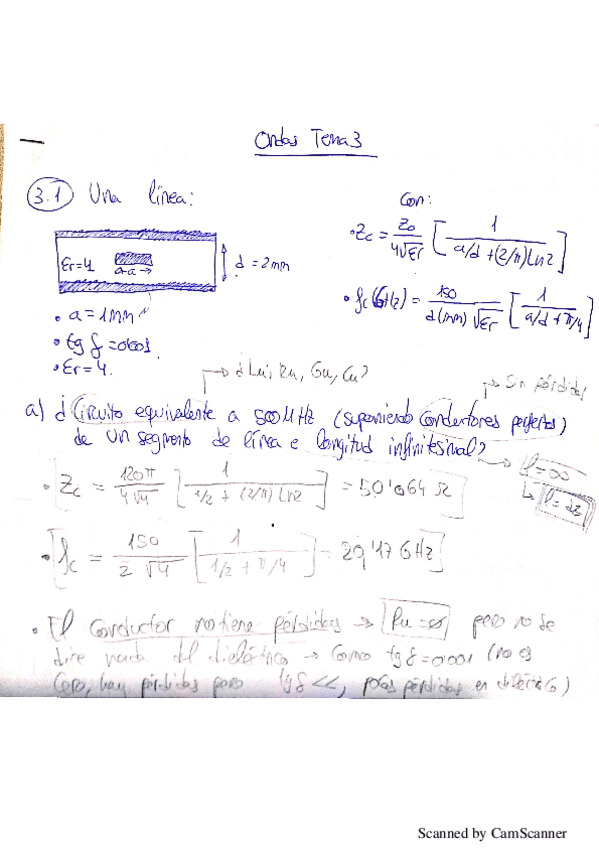 Ondas Tema 3
3.1 Una línea:
Con:
• Zc = Z0/(4√εr) [1/(a/d + (2/π) Ln2)]
εr=4
a
d = 2mm
• fc(GHz) = 150/(d(mm) √εr) [1/(a/d + π/4)]
• a = 1mm
• tg δ = 0'001
• εr = 4.
→ ¿Lu, Ru, Gu, Cu?
→ Sin pérdidas
a) ¿Circuito equivalente a 500MHz (suponiendo conductores perfectos)
de un segmento de línea e longitud infinitesimal?
• Zc = 120π/(4√4) [1/(1/2 + (2/π) Ln2)] = 50'064 Ω
• fc = 150/(2√4) [1/(1/2 + π/4)] = 29'17 GHz
• El conductor no tiene pérdidas → pero no se
dice nada del dieléctrico → Como tg δ = 0'001 (no es
cero, hay pérdidas pero tg δ <<, pocas pérdidas en dieléctrico)
Scanned by CamScanner